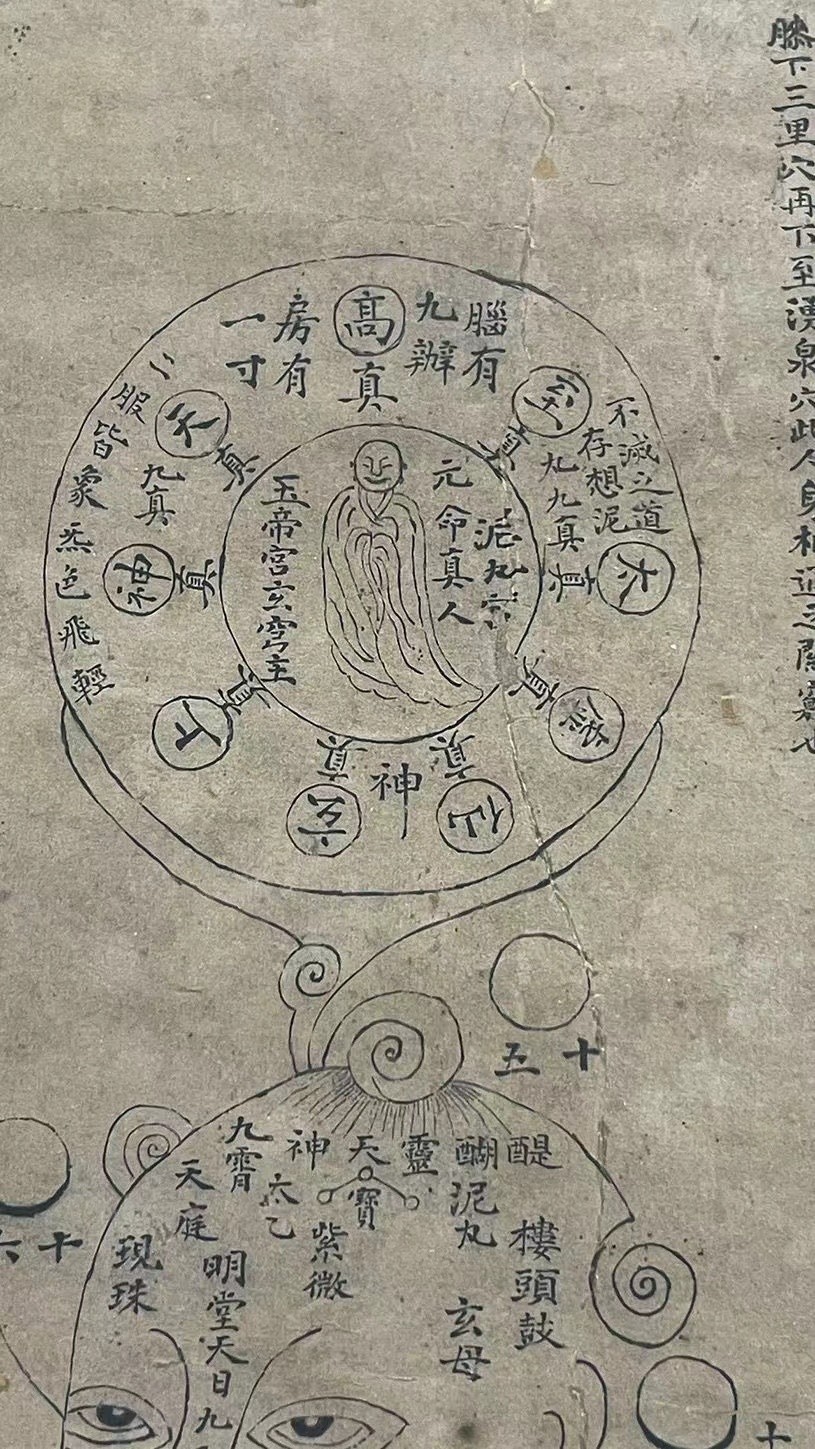 膝下三里穴再下至湧泉穴此人身相通之關竅也
腦有
九辦
高
真
房有
一寸
二
服皆象炁色飛輕
不滅之道
存想泥
丸九真
至
真
太
真
真
仙
真
神
玄
真
上
真
神
真
天
真
九真
泥丸宮
元命真人
玉帝宮玄穹主
十五
十六
醍醐
靈
天
神
九霄
天庭
太乙
寶
泥丸
樓頭鼓
紫微
玄母
現珠
明堂天日九
十